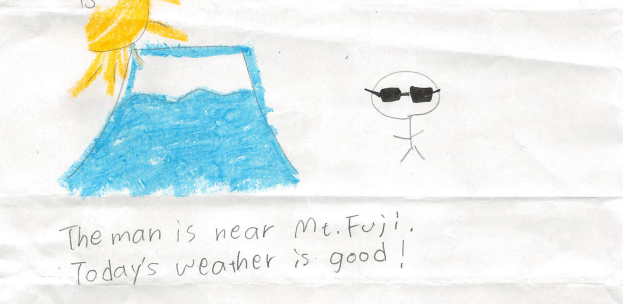 The man is near Mt. Fuji.
Today's weather is good!